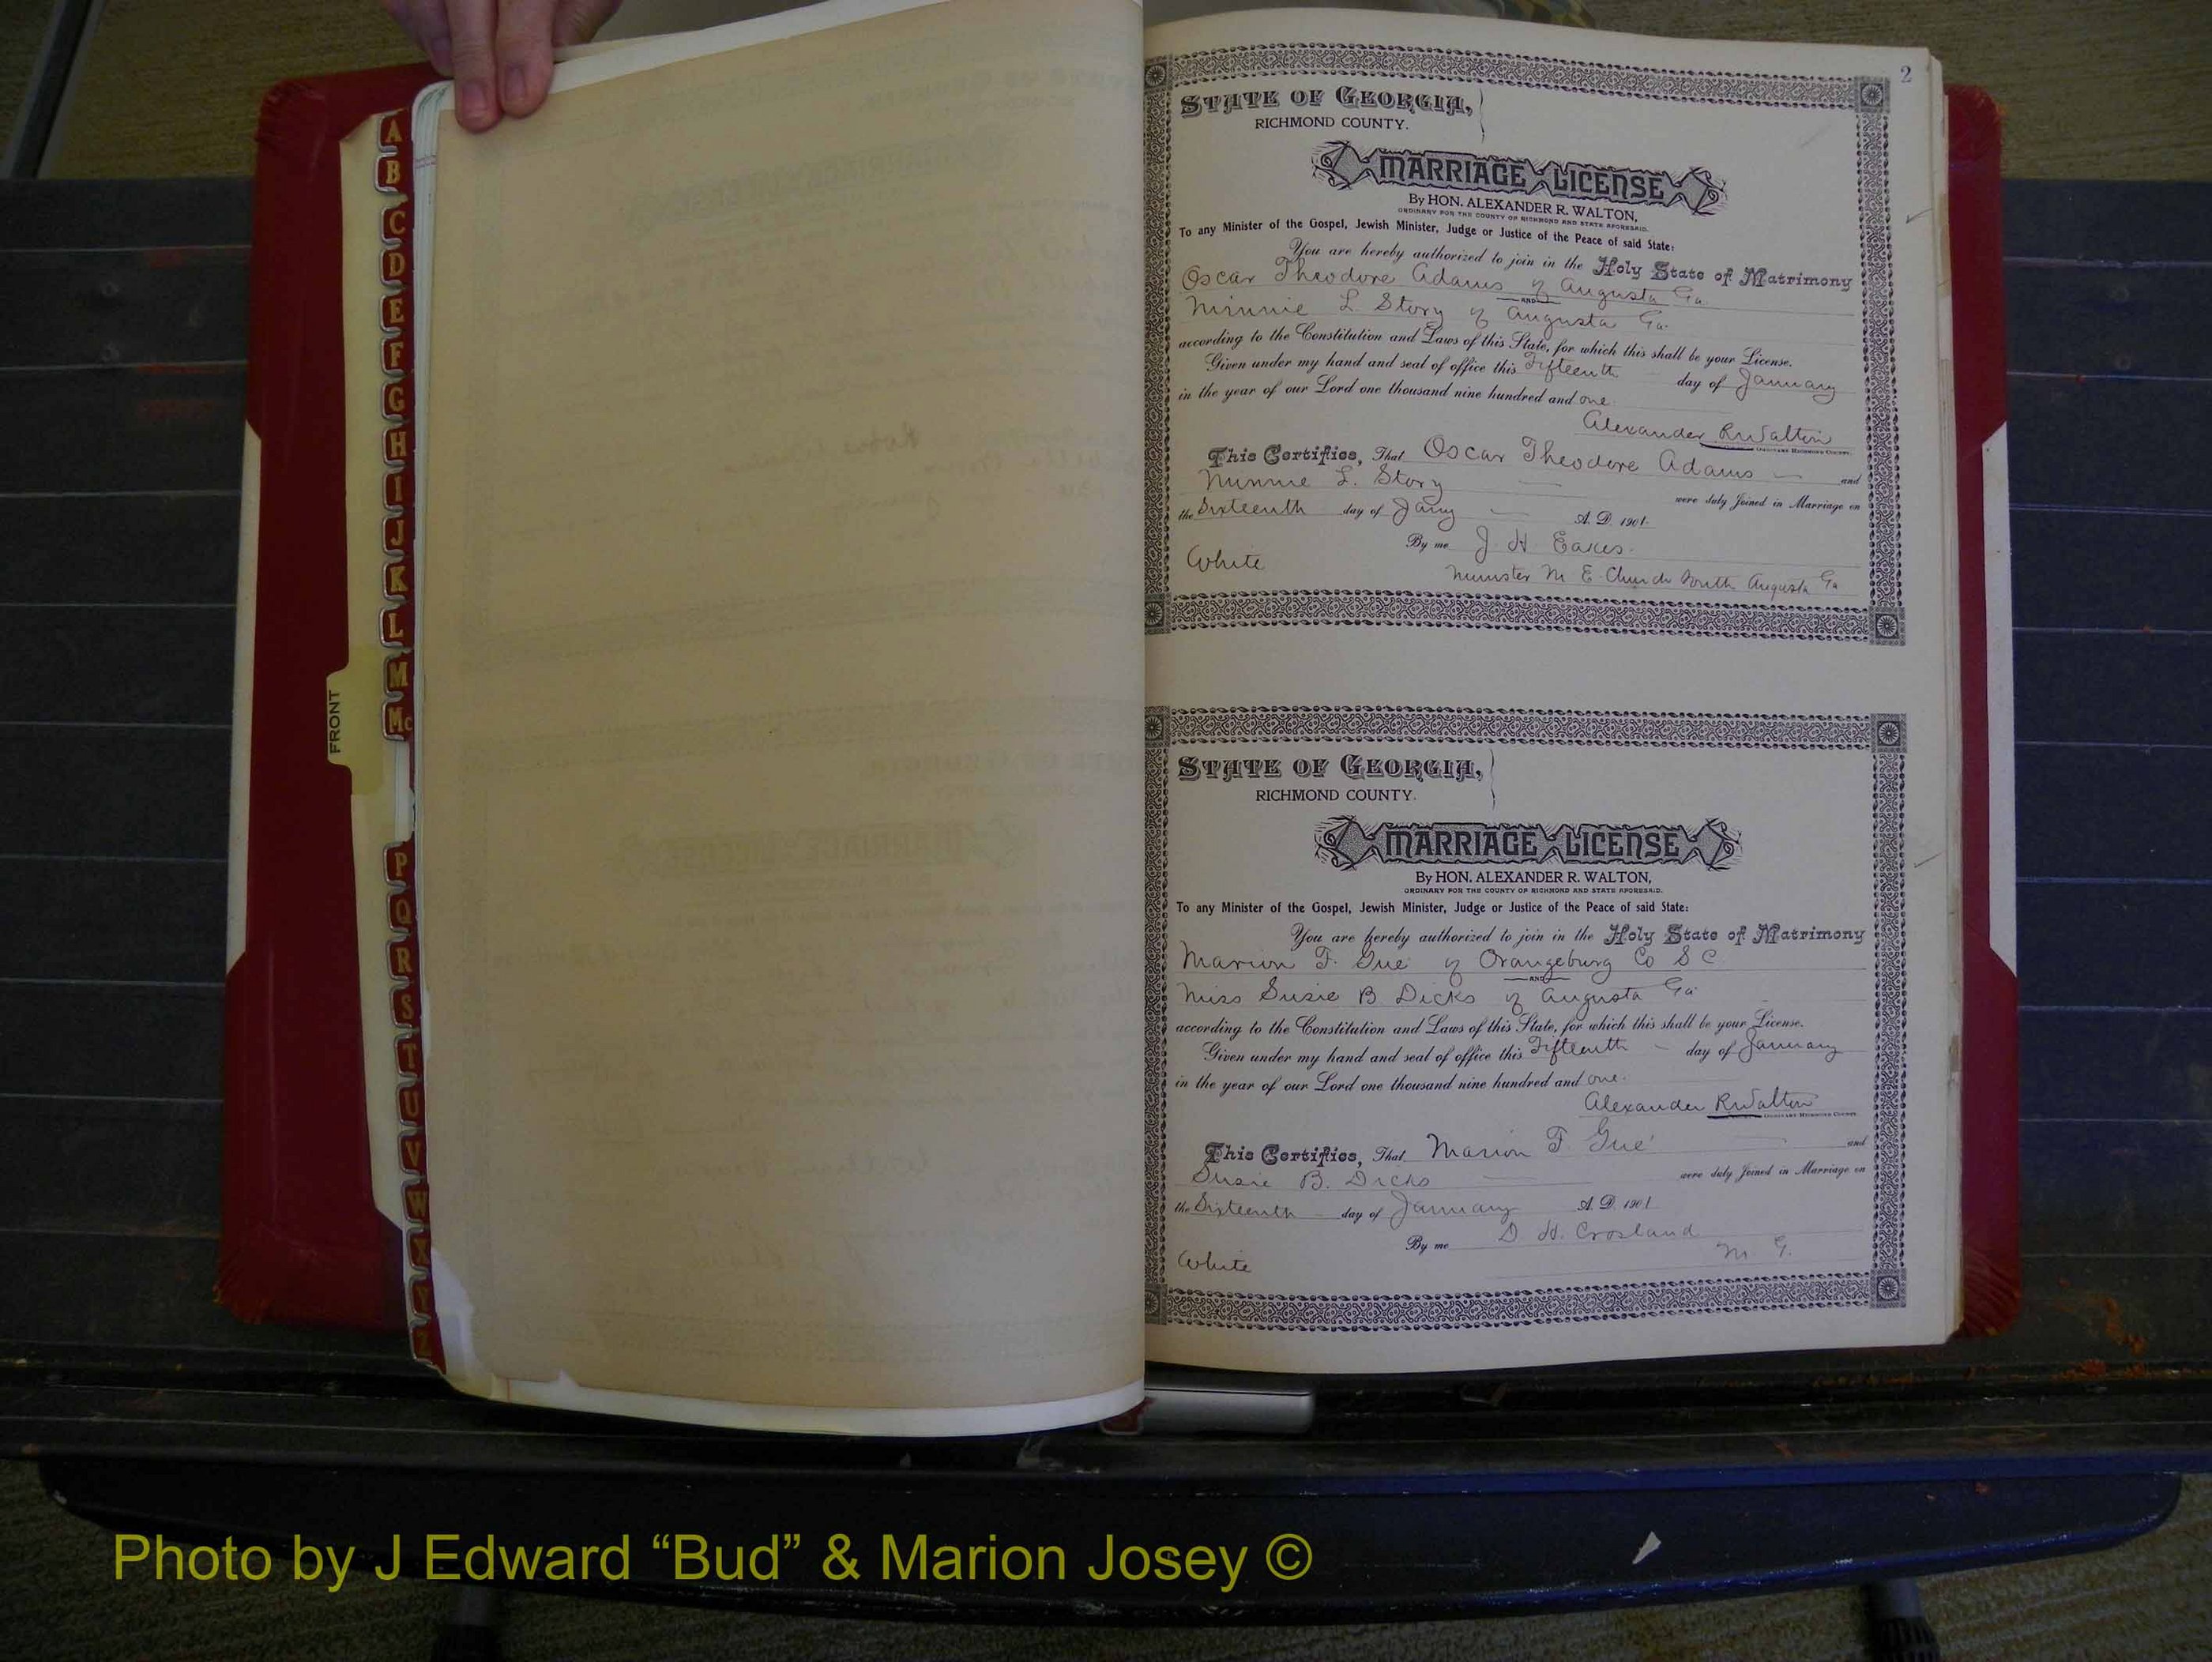 A
B
C
D
E
F
G
H
I
J
K
L
M
Mc
P
Q
R
S
T
U
V
W
X
Y
Z
FRONT
2
STATE OF GEORGIA,
RICHMOND COUNTY.
MARRIAGE LICENSE
By HON. ALEXANDER R. WALTON,
ORDINARY FOR THE COUNTY OF RICHMOND AND STATE AFORESAID.
To any Minister of the Gospel, Jewish Minister, Judge or Justice of the Peace of said State:
You are hereby authorized to join in the Holy State of Matrimony
Oscar Theodore Adams of Augusta Ga.
AND
Minnie L. Story of Augusta Ga.
according to the Constitution and Laws of this State, for which this shall be your License.
Given under my hand and seal of office this Fifteenth day of January
in the year of our Lord one thousand nine hundred and one.
Alexander R Walton
ORDINARY RICHMOND COUNTY.
This Certifies, That Oscar Theodore Adams and
Minnie L. Story were duly Joined in Marriage on
the Sixteenth day of Jany A. D. 1901.
By me J. H Eakes.
White
Minister M E Church South Augusta Ga
STATE OF GEORGIA,
RICHMOND COUNTY.
MARRIAGE LICENSE
By HON. ALEXANDER R. WALTON,
ORDINARY FOR THE COUNTY OF RICHMOND AND STATE AFORESAID.
To any Minister of the Gospel, Jewish Minister, Judge or Justice of the Peace of said State:
You are hereby authorized to join in the Holy State of Matrimony
Marion F. Gue of Orangeburg Co S C
AND
Miss Susie B Dicks of Augusta Ga
according to the Constitution and Laws of this State, for which this shall be your License.
Given under my hand and seal of office this Fifteenth day of January
in the year of our Lord one thousand nine hundred and one.
Alexander R Walton
ORDINARY RICHMOND COUNTY.
This Certifies, That Marion F. Gue and
Susie B. Dicks were duly Joined in Marriage on
the Sixteenth day of January A. D. 1901
By me D. H. Crosland
White
M. G.
Photo by J Edward “Bud” & Marion Josey ©